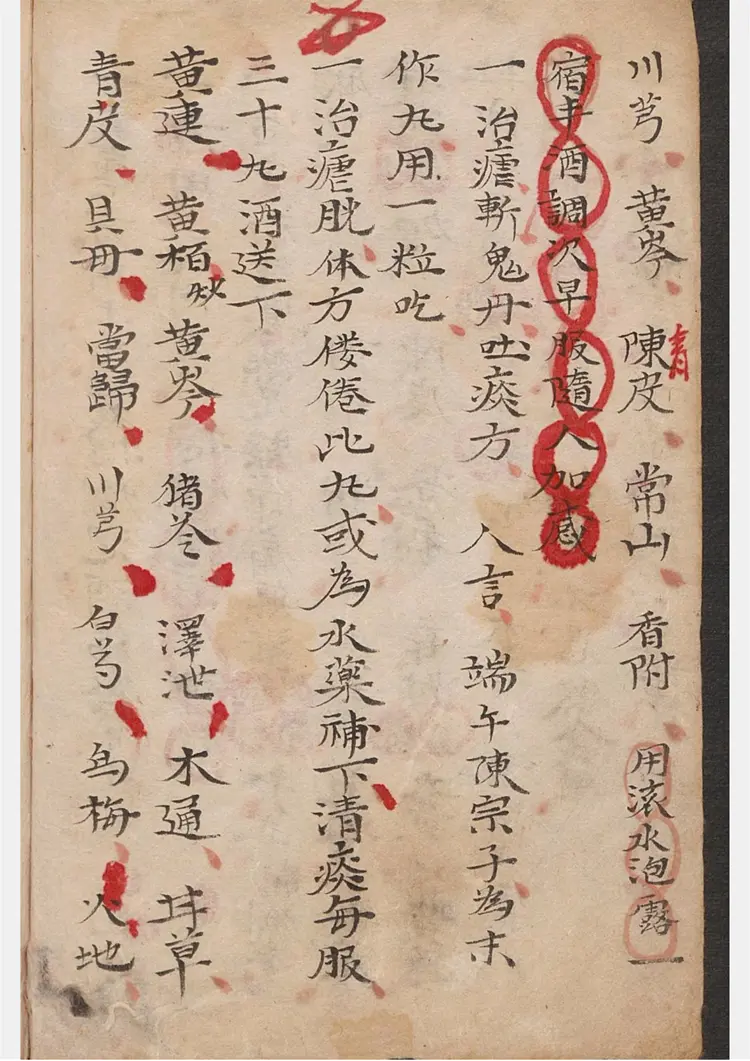 川芎 黄岑 陳皮 常山 香附 用滾水泡露一
青
宿半酒調次早服隨人加感
一治瘧斬鬼丹吐痰方 人言 端午陳宗子為末
作丸用一粒吃
一治瘧脱体方偻倦比丸或為水藥補下清痰每服
三十丸酒送下
黄連 黄栢炒 黄岑 猪苓 澤泄 木通 甘草
青皮 貝毋 當歸 川芎 白芍 烏梅 火地